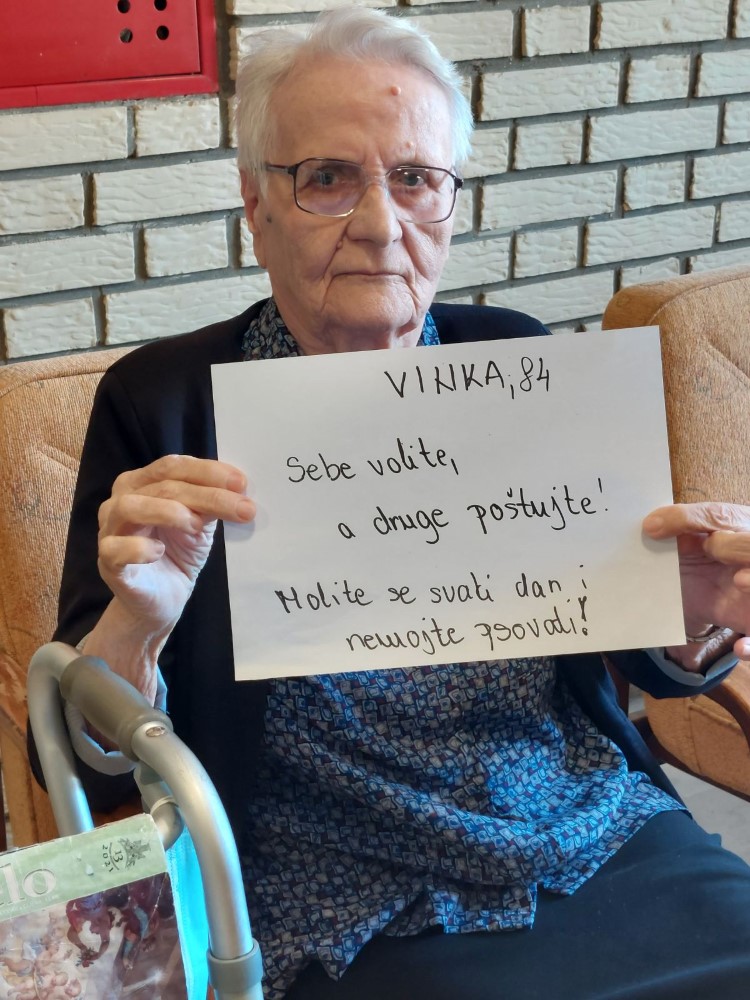 VINKA, 84
Sebe volite,
a druge poštujte!
Molite se svati dan i
nemojte psovati!
lo
13
2021